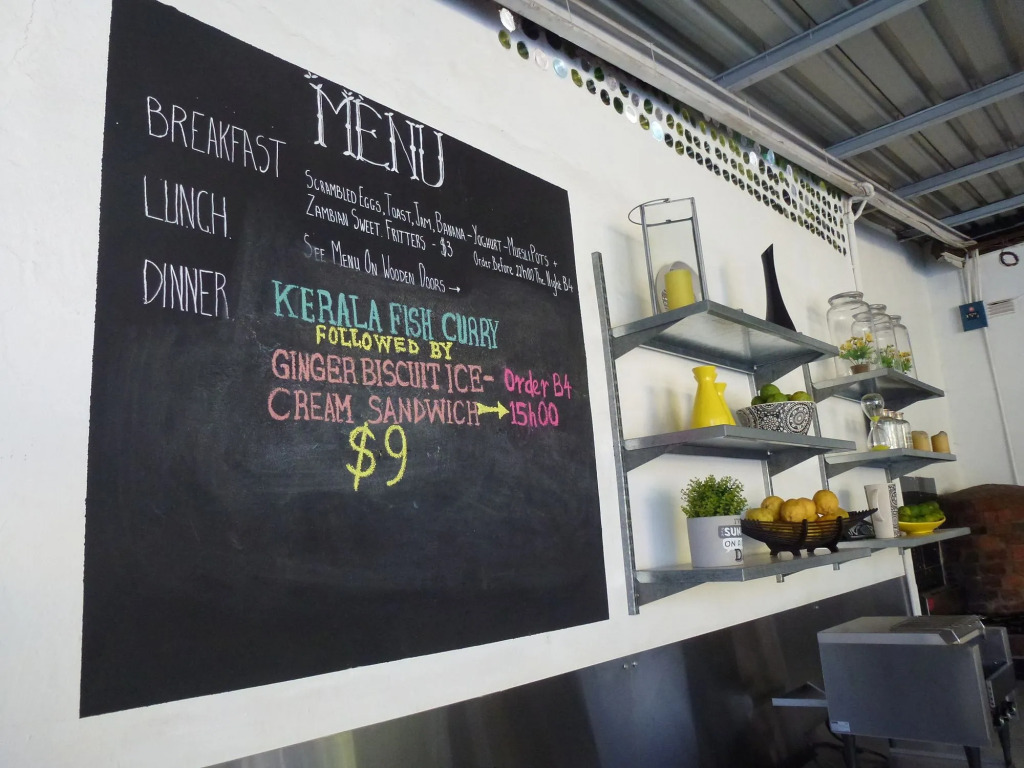 MENU
BREAKFAST
SCRAMBLED EGGS, TOAST, JAM, BANANA - YOGHURT - MUESLI POTS +
ZAMBIAN SWEET FRITTERS - $3 Order Before 22h00 The Night B4
LUNCH
SEE MENU ON WOODEN DOORS →
DINNER
KERALA FISH CURRY
FOLLOWED BY
GINGER BISCUIT ICE- Order B4
CREAM SANDWICH → 15h00
$9
SUN
ON
D